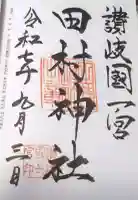 讃岐國一宮
田村神社
令和七年九月三日